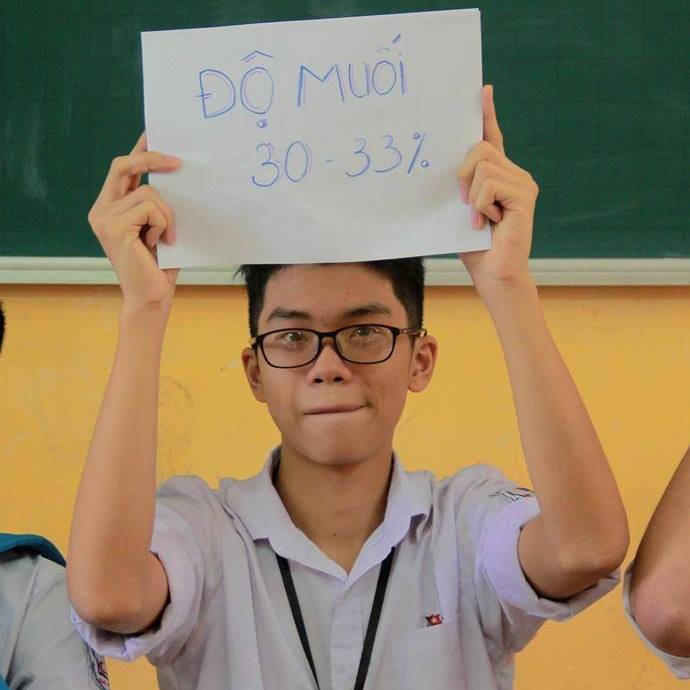 ĐỘ MUỐI
30 - 33%